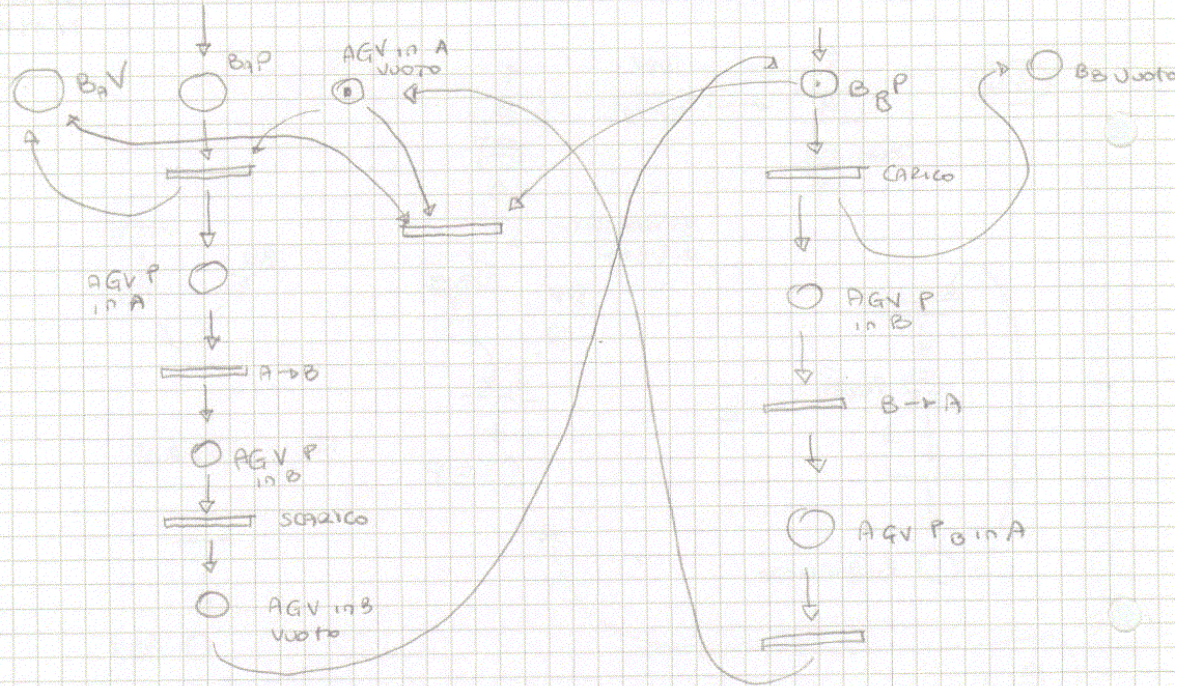 B_A V
B_A P
AGV in A
VUOTO
B_B P
B_B VUOTO
CARICO
AGV P
in A
AGV P
in B
A→B
B→A
AGV P
in B
SCARICO
AGV P_B in A
AGV in B
VUOTO